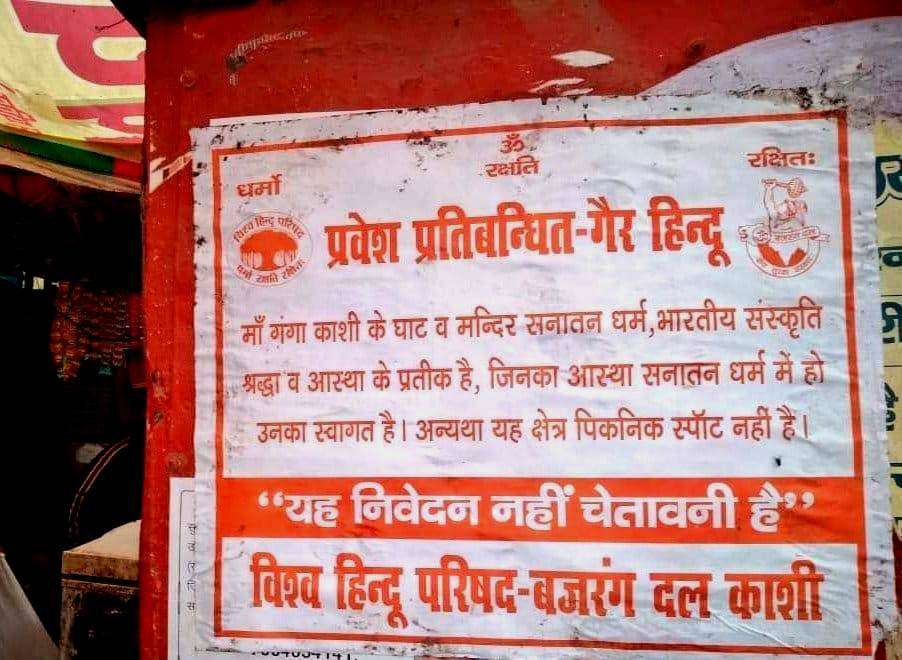 ॐ
धर्मो रक्षति रक्षितः
विश्व हिन्दू परिषद
धर्मो रक्षति रक्षितः
प्रवेश प्रतिबन्धित-गैर हिन्दू
माँ गंगा काशी के घाट व मन्दिर सनातन धर्म,भारतीय संस्कृति
श्रद्धा व आस्था के प्रतीक है, जिनका आस्था सनातन धर्म में हो
उनका स्वागत है। अन्यथा यह क्षेत्र पिकनिक स्पॉट नहीं है।
“यह निवेदन नहीं चेतावनी है”
विश्व हिन्दू परिषद-बजरंग दल काशी